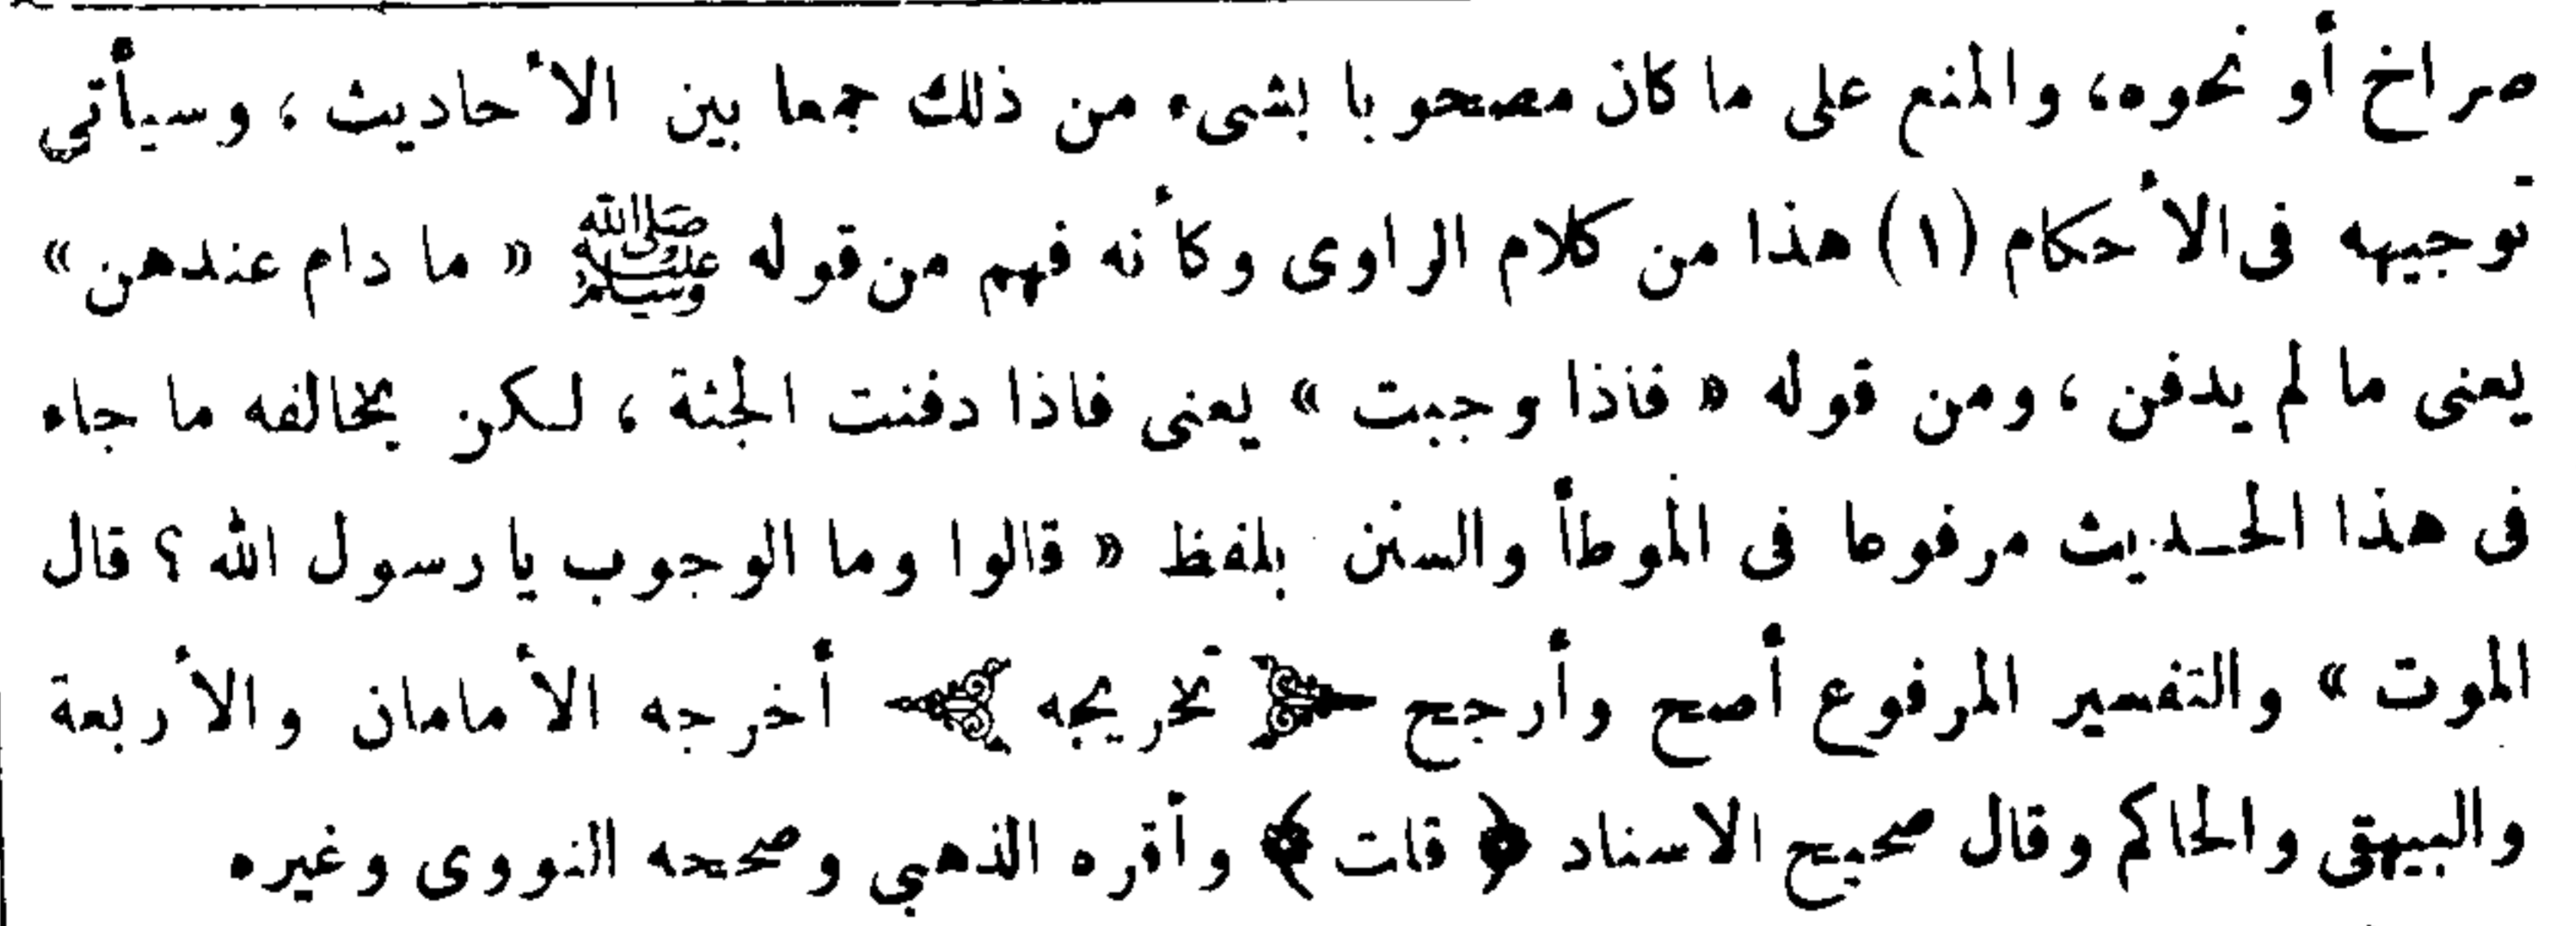 صراخ أو نحوه، والمنع على ما كان مصحوبا بشىء من ذلك جمعا بين الأحاديث، وسيأتى
توجيهه فى الأحكام (١) هذا من كلام الراوى وكأنه فهم من قوله ﷺ «ما دام عندهن»
يعنى ما لم يدفن، ومن قوله «فاذا وجبت» يعنى فاذا دفنت الجثة، لكن يخالفه ما جاء
فى هذا الحديث مرفوعا فى الموطأ والسنن بلفظ «قالوا وما الوجوب يا رسول الله؟ قال
الموت» والتفسير المرفوع أصح وأرجح ﴿تخريجه﴾ أخرجه الأمامان والأربعة
والبيهقى والحاكم وقال صحيح الاسناد ﴿قلت﴾ وأقره الذهبى وصححه النووى وغيره